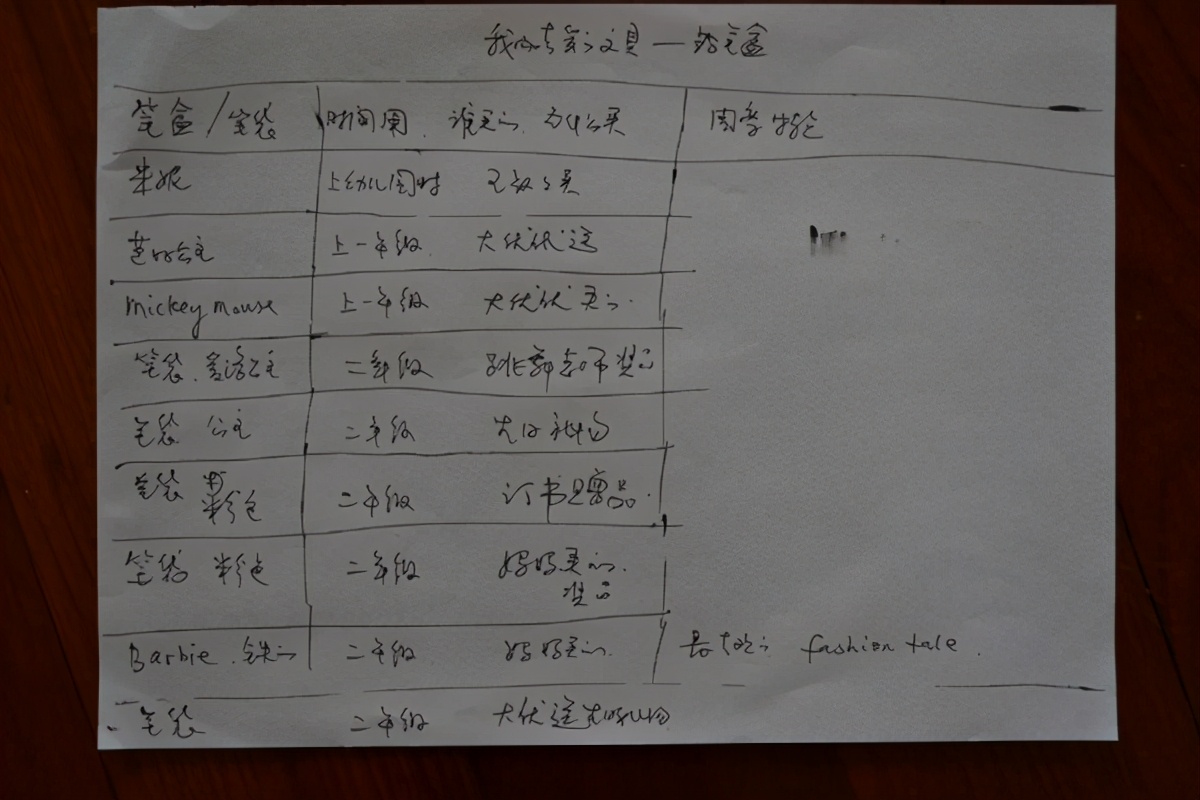 我的 文具 — 铅笔盒
笔盒/笔袋 时间 谁买的 为什么买
米妮 上幼儿园时 买
芭比公主 上一年级 大伏伏送
mickey mouse 上一年级 大伏伏买的.
笔袋. 公主 二年级 跳舞老师奖品
笔袋 公主 二年级 生日礼物
笔袋 粉色 二年级 订书 赠品.
笔袋 粉色 二年级 妈妈买的.
奖品
Barbie. 铁的 二年级 妈妈买的. 最大的 fashion tale.
笔袋 二年级 大伏送 礼物